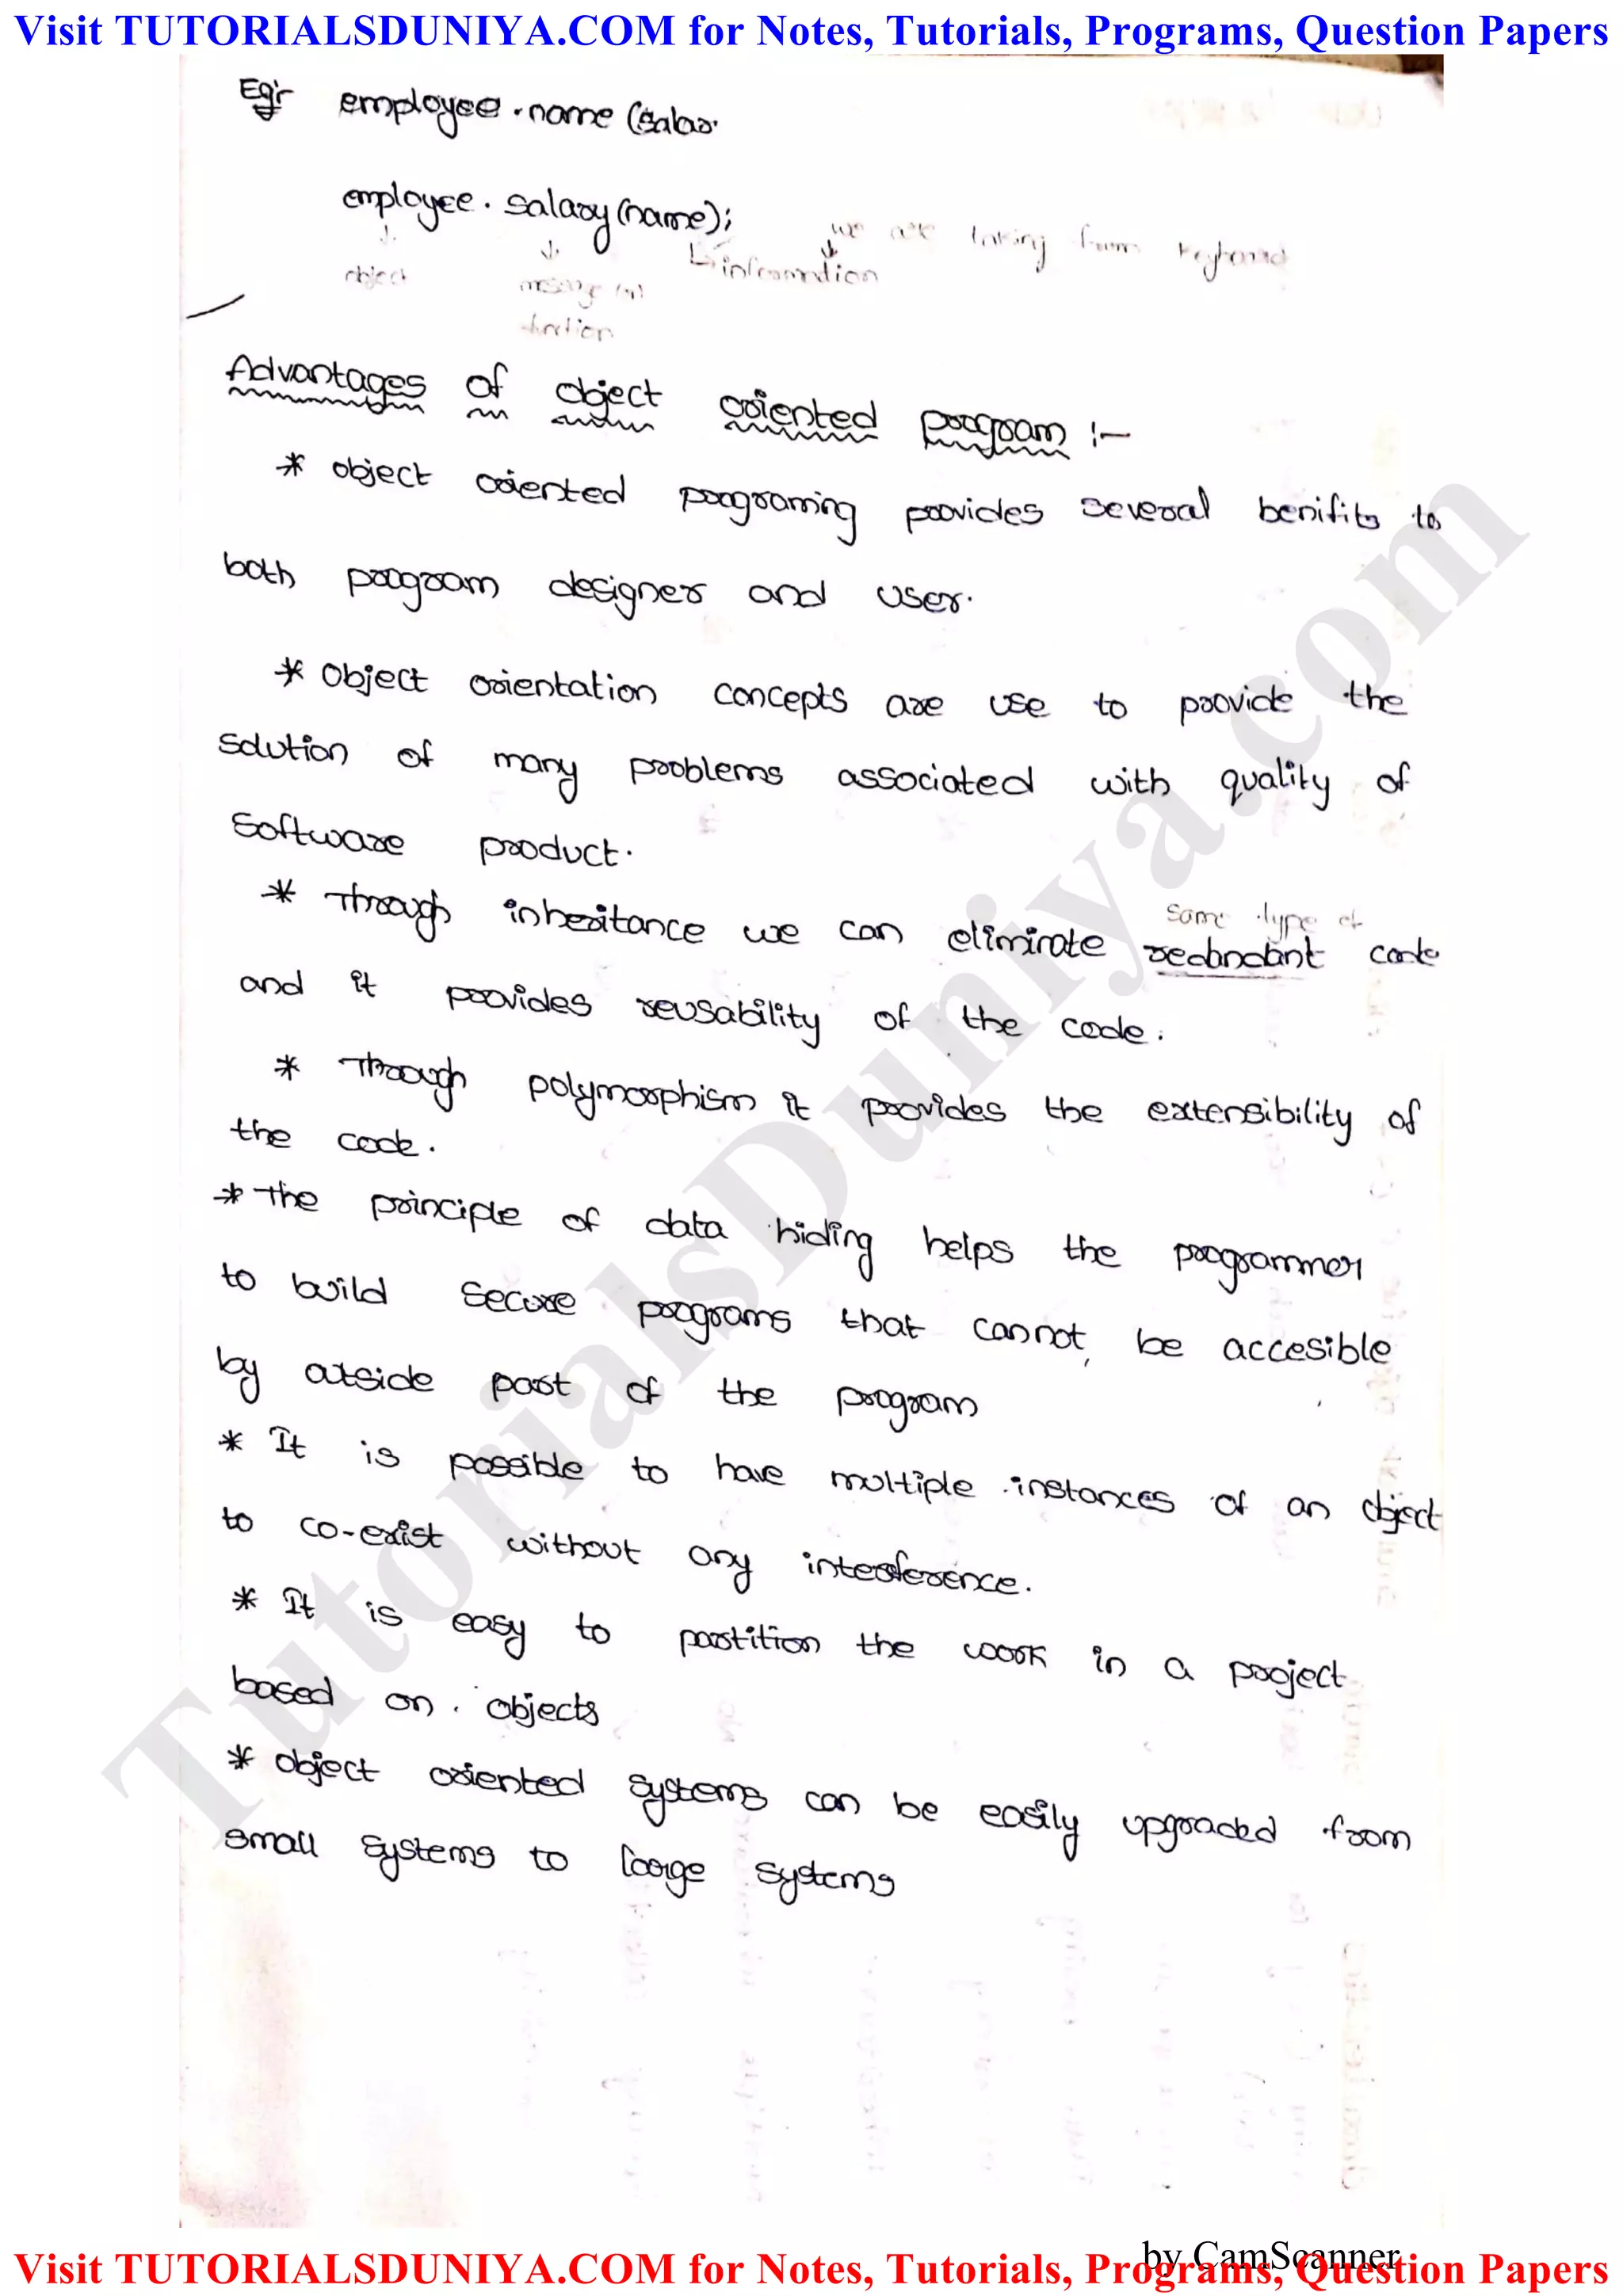 Visit TUTORIALSDUNIYA.COM for Notes, Tutorials, Programs, Question Papers
Eg:- employee.name (salar
employee.salary(name);
we are taking from keyboard
object message (or) information
function
Advantages of object oriented program :-
* object oriented programing provides several benifits to
both program designer and user.
* Object orientation concepts are use to provide the
solution of many problems associated with quality of
Software product.
same type of
* Through inheritance we can eliminate redundant code
and it provides reusability of the code.
* Through polymorphism it provides the extensibility of
the code.
* The principle of data hiding helps the programmer
to build secure programs that cannot, be accesible
by outside part of the program
* It is possible to have multiple instances of an object
to co-exist without any interference.
* It is easy to partition the work in a project
based on objects
* object oriented systems can be easily upgraded from
small systems to large systems
TutorialsDuniya.com
by CamScanner
Visit TUTORIALSDUNIYA.COM for Notes, Tutorials, Programs, Question Papers